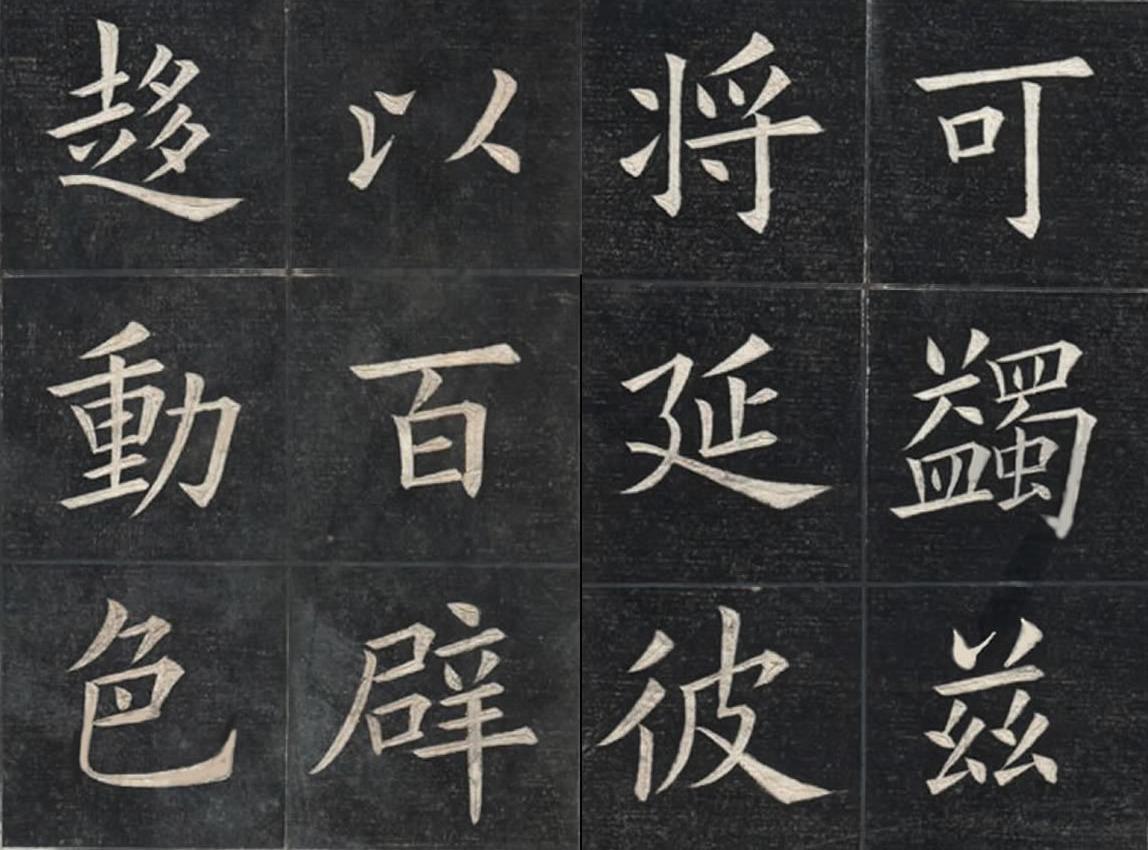 可蠲兹
将延彼
以百辟
趍動色